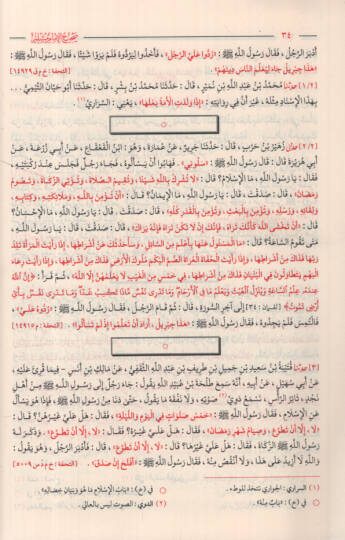 ٣٤
أَدْبَرَ الرَّجُلُ، فَقَالَ رَسُولُ اللَّهِ ﷺ: «رُدُّوا عَلَيَّ الرَّجُلَ»، فَأَخَذُوا لِيَرُدُّوهُ فَلَمْ يَرَوْا شَيْئًا، فَقَالَ رَسُولُ اللَّهِ ﷺ:
«هَذَا جِبْرِيلُ جَاءَ لِيُعَلِّمَ النَّاسَ دِينَهُمْ».
مُحَمَّدُ بْنُ عَبْدِ اللَّهِ بْنِ نُمَيْرٍ، قَالَ: حَدَّثَنَا مُحَمَّدُ بْنُ بِشْرٍ، قَالَ: حَدَّثَنَا أَبُو حَيَّانَ التَّيْمِيُّ...
بِهَذَا الْإِسْنَادِ مِثْلَهُ، غَيْرَ أَنَّ فِي رِوَايَتِهِ: «إِذَا وَلَدَتِ الْأَمَةُ بَعْلَهَا»، يَعْنِي: السَّرَارِيَّ
زُهَيْرُ بْنُ حَرْبٍ، قَالَ: حَدَّثَنَا جَرِيرٌ، عَنْ عُمَارَةَ، وَهُوَ: ابْنُ الْقَعْقَاعِ، عَنْ أَبِي زُرْعَةَ، عَنْ
أَبِي هُرَيْرَةَ قَالَ: قَالَ رَسُولُ اللَّهِ ﷺ: «سَلُونِي». فَهَابُوا أَنْ يَسْأَلُوهُ، فَجَاءَ رَجُلٌ فَجَلَسَ عِنْدَ رُكْبَتَيْهِ،
فَقَالَ: يَا رَسُولَ اللَّهِ، مَا الْإِسْلَامُ؟ قَالَ: «لَا تُشْرِكُ بِاللَّهِ شَيْئًا، وَتُقِيمُ الصَّلَاةَ، وَتُؤْتِي الزَّكَاةَ، وَتَصُومُ
رَمَضَانَ» قَالَ: صَدَقْتَ، قَالَ: يَا رَسُولَ اللَّهِ، مَا الْإِيمَانُ؟ قَالَ: «أَنْ تُؤْمِنَ بِاللَّهِ، وَمَلَائِكَتِهِ، وَكِتَابِهِ،
وَلِقَائِهِ، وَرُسُلِهِ، وَتُؤْمِنَ بِالْبَعْثِ، وَتُؤْمِنَ بِالْقَدَرِ كُلِّهِ»، قَالَ: صَدَقْتَ، قَالَ: يَا رَسُولَ اللَّهِ، مَا الْإِحْسَانُ؟
قَالَ: «أَنْ تَخْشَى اللَّهَ كَأَنَّكَ تَرَاهُ، فَإِنَّكَ إِنْ لَا تَكُنْ تَرَاهُ فَإِنَّهُ يَرَاكَ»، قَالَ: صَدَقْتَ، قَالَ: يَا رَسُولَ اللَّهِ،
مَتَى تَقُومُ السَّاعَةُ؟ قَالَ: «مَا الْمَسْئُولُ عَنْهَا بِأَعْلَمَ مِنَ السَّائِلِ، وَسَأُحَدِّثُكَ عَنْ أَشْرَاطِهَا، إِذَا رَأَيْتَ الْمَرْأَةَ تَلِدُ
رَبَّهَا فَذَاكَ مِنْ أَشْرَاطِهَا، وَإِذَا رَأَيْتَ الْحُفَاةَ الْعُرَاةَ الصُّمَّ الْبُكْمَ مُلُوكَ الْأَرْضِ فَذَاكَ مِنْ أَشْرَاطِهَا، وَإِذَا رَأَيْتَ رِعَاءَ
الْبَهْمِ يَتَطَاوَلُونَ فِي الْبُنْيَانِ فَذَاكَ مِنْ أَشْرَاطِهَا، فِي خَمْسٍ مِنَ الْغَيْبِ لَا يَعْلَمُهُنَّ إِلَّا اللَّهُ»، ثُمَّ قَرَأَ: ﴿إِنَّ اللَّهَ
عِنْدَهُ عِلْمُ السَّاعَةِ وَيُنَزِّلُ الْغَيْثَ وَيَعْلَمُ مَا فِي الْأَرْحَامِ وَمَا تَدْرِي نَفْسٌ مَاذَا تَكْسِبُ غَدًا وَمَا تَدْرِي نَفْسٌ بِأَيِّ
أَرْضٍ تَمُوتُ﴾ إِلَى آخِرِ السُّورَةِ، قَالَ: ثُمَّ قَامَ الرَّجُلُ، فَقَالَ رَسُولُ اللَّهِ ﷺ: «رُدُّوهُ عَلَيَّ»،
فَالْتُمِسَ فَلَمْ يَجِدُوهُ، فَقَالَ رَسُولُ اللَّهِ ﷺ: «هَذَا جِبْرِيلُ، أَرَادَ أَنْ تَعَلَّمُوا إِذْ لَمْ تَسْأَلُوا».
قُتَيْبَةُ بْنُ سَعِيدِ بْنِ جَمِيلِ بْنِ طَرِيفِ بْنِ عَبْدِ اللَّهِ الثَّقَفِيُّ، عَنْ مَالِكِ بْنِ أَنَسٍ - فِيمَا قُرِئَ عَلَيْهِ،
عَنْ أَبِي سُهَيْلٍ، عَنْ أَبِيهِ، أَنَّهُ سَمِعَ طَلْحَةَ بْنَ عُبَيْدِ اللَّهِ يَقُولُ: جَاءَ رَجُلٌ إِلَى رَسُولِ اللَّهِ ﷺ مِنْ أَهْلِ
نَجْدٍ، ثَائِرُ الرَّأْسِ، نَسْمَعُ دَوِيَّ صَوْتِهِ، وَلَا نَفْقَهُ مَا يَقُولُ، حَتَّى دَنَا مِنْ رَسُولِ اللَّهِ ﷺ، فَإِذَا هُوَ يَسْأَلُ
عَنِ الْإِسْلَامِ، فَقَالَ رَسُولُ اللَّهِ ﷺ: «خَمْسُ صَلَوَاتٍ فِي الْيَوْمِ وَاللَّيْلَةِ»، فَقَالَ: هَلْ عَلَيَّ غَيْرُهُنَّ؟ قَالَ:
«لَا، إِلَّا أَنْ تَطَّوَّعَ، وَصِيَامُ شَهْرِ رَمَضَانَ»، فَقَالَ: هَلْ عَلَيَّ غَيْرُهُ؟ فَقَالَ: «لَا، إِلَّا أَنْ تَطَّوَّعَ»، وَذَكَرَ لَهُ
رَسُولُ اللَّهِ ﷺ الزَّكَاةَ، فَقَالَ: هَلْ عَلَيَّ غَيْرُهَا؟ قَالَ: «لَا، إِلَّا أَنْ تَطَّوَّعَ»، قَالَ: فَأَدْبَرَ الرَّجُلُ، وَهُوَ يَقُولُ:
وَاللَّهِ لَا أَزِيدُ عَلَى هَذَا، وَلَا أَنْقُصُ مِنْهُ، فَقَالَ رَسُولُ اللَّهِ ﷺ: «أَفْلَحَ إِنْ صَدَقَ».
(١) السراري: الجواري تتخذ للوطء.
(٢) الدوي: الصوت ليس بالعالي.